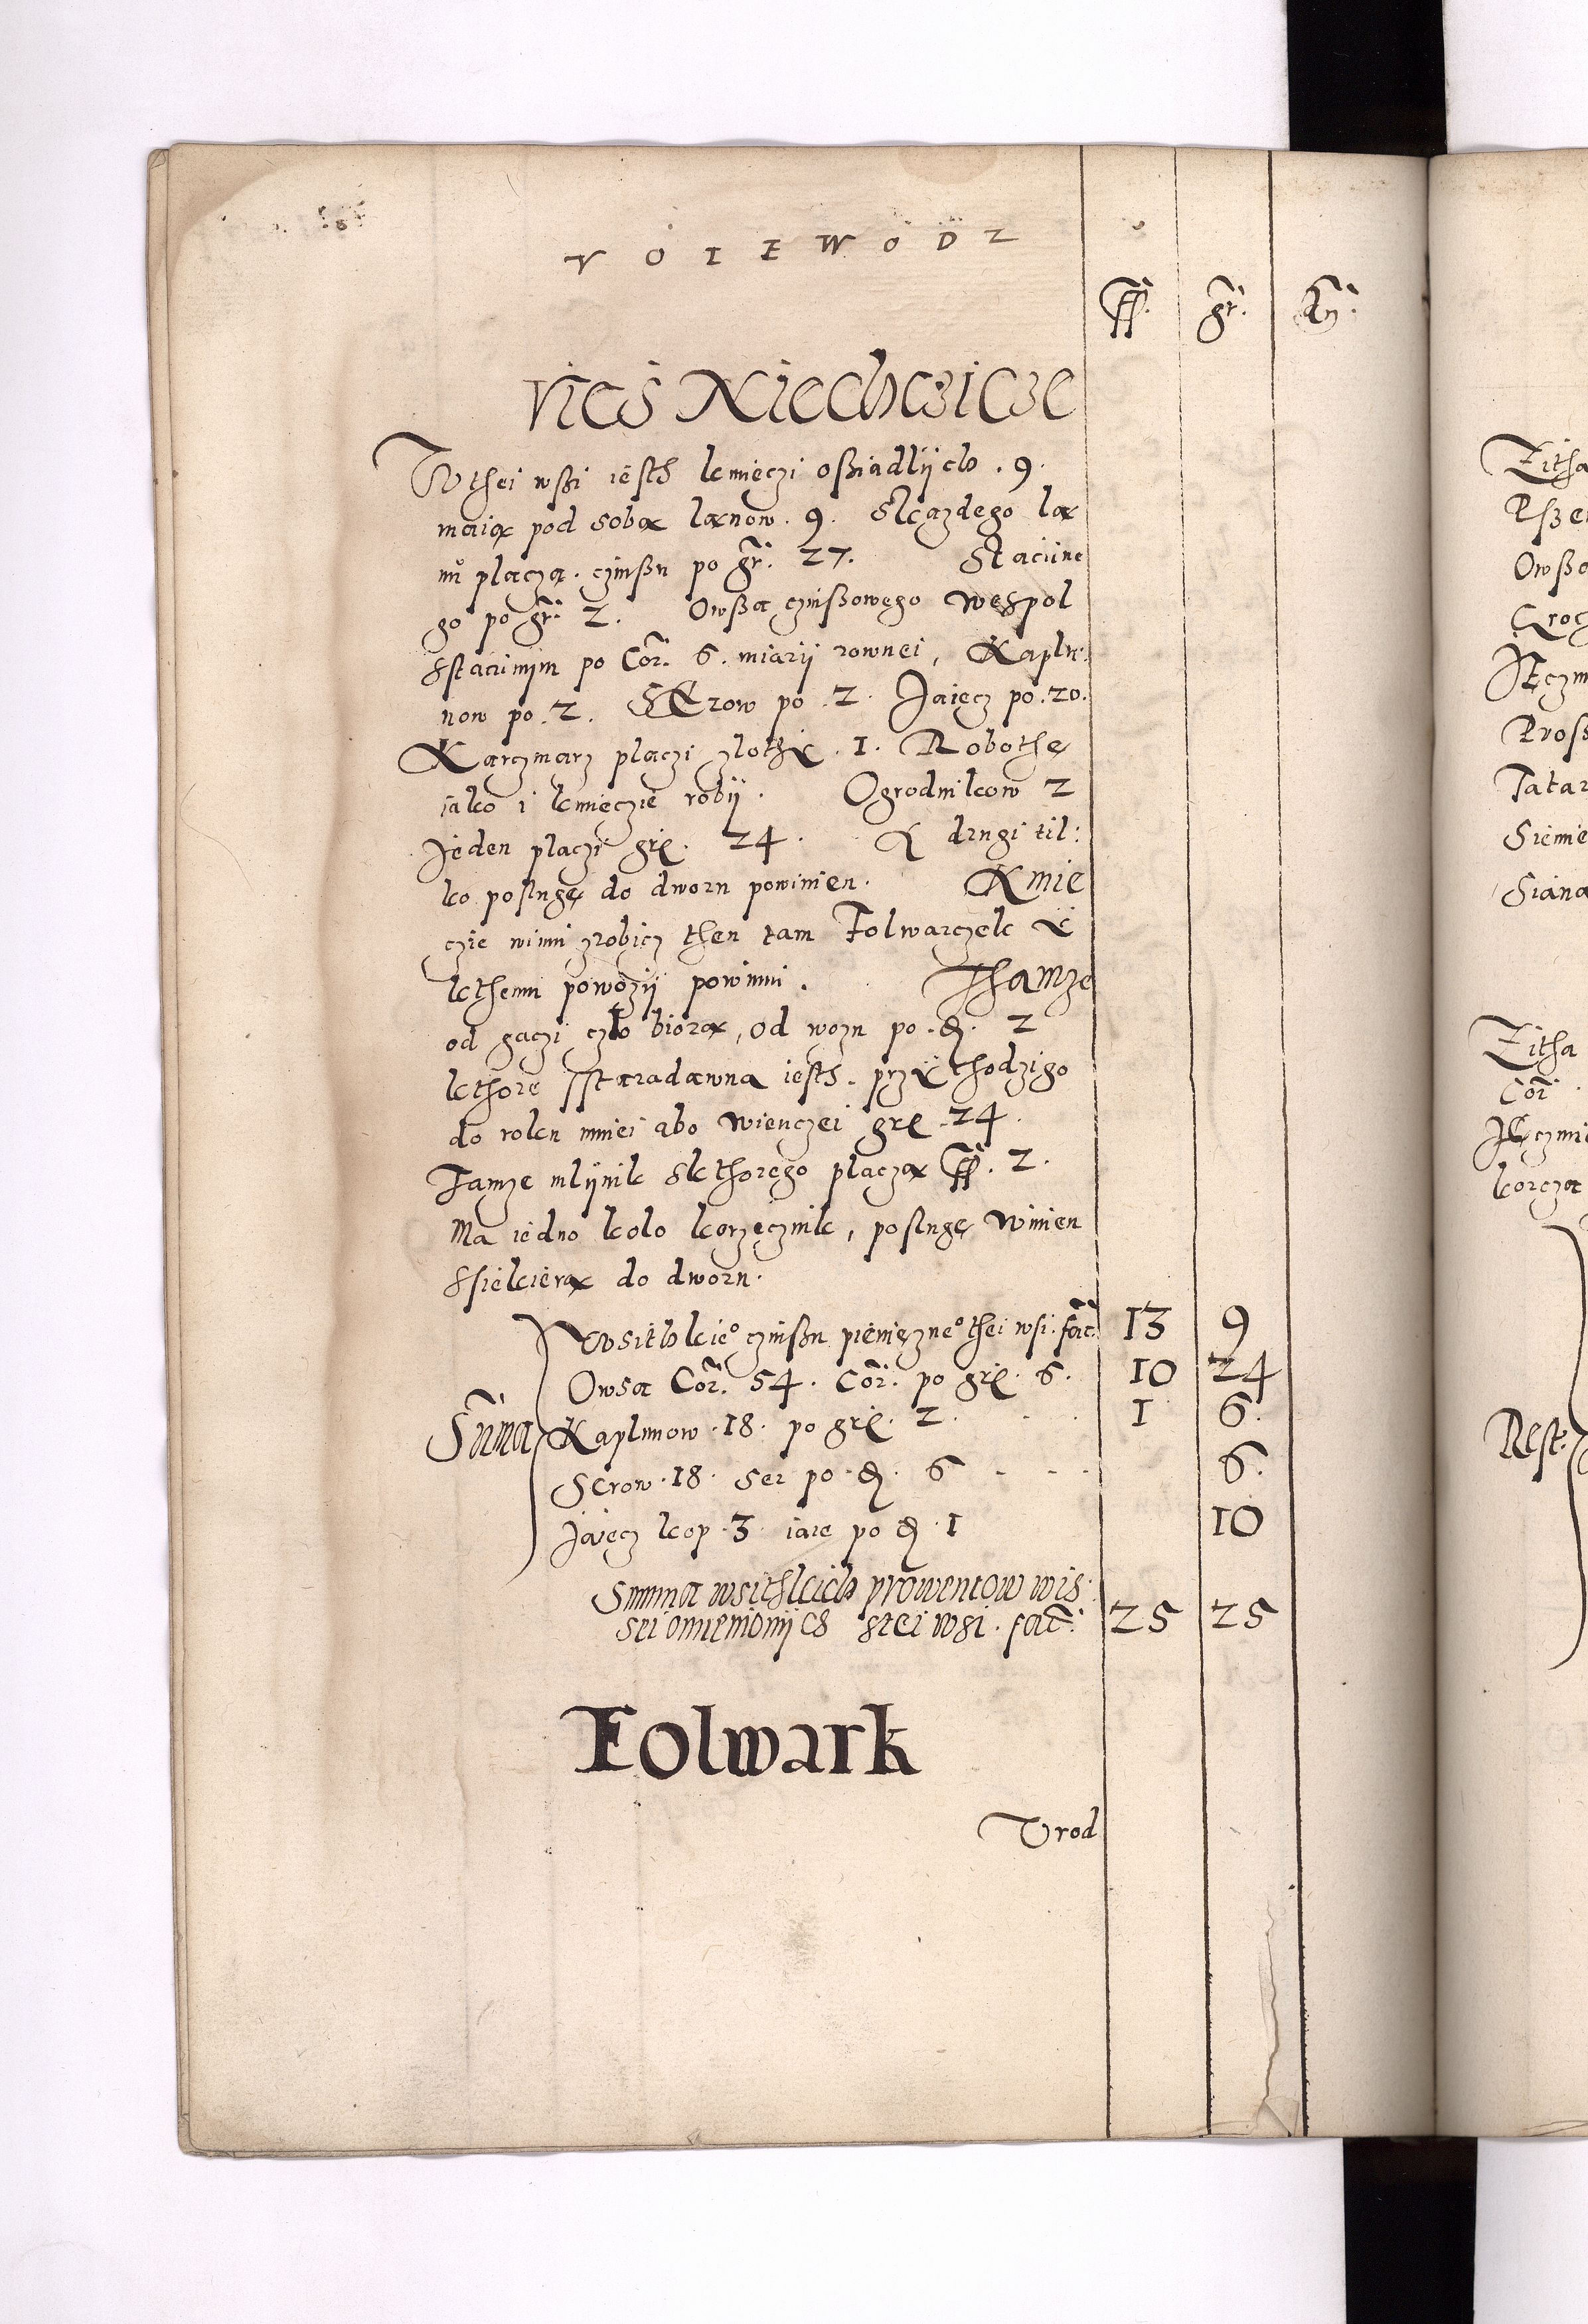 VOIEWODZ
ff. gr. dn.
Vies Niechczicze
W thei wßi iesth kmieczi oßiadlÿch . 9 .
maią pod sobą lanow . 9 . Skazdego la
nu placza . czinßu po gr. 27. Staciine
go po gr. 2 . Owßa czinßowego wespol
sstaciinim po Cor. 6 . miarÿ rownei, Kaplu:
now po . 2 . SErow po . 2 . Jaiecz po . 20 .
Karczmarz placzi zlothÿ . 1 . Robothę
iako i kmieczie robÿ . Ogrodnikow 2
Jeden placzi grÿ . 24 . Ÿ drugi til:
ko poslugę do dworu powinien . Kmie
czie winni zrobicz then tam Folwarczek ÿ
kthemu powozÿ powinni . Thamze
od gaczi czlo biorą, od wozu po . d . 2
kthore sstaradawna iesth . przÿchodzi go
do roku mniei abo wienczei grÿ . 24 .
Tamze mlÿnik skthorego placzą ff . 2 .
Ma iedno kolo korzecznik, poslugę winien
ssiekierą do dworu .
Wsithkie° czinßu pienięzne° thei wsi . fac. 13 9
Owsa Cor. 54 . Cor. po grÿ . 6 . 10 24
Suma Kaplunow . 18 . po grÿ . 2 . 1 6 .
Serow . 18 . Ser po . d . 6 6 .
Jaiecz kop . 3 . iaie po d . 1 10
Summa wsithkich prowentow wis:
sei omienionÿch stei wsi . fac: 25 25
Folwark
Vrod
Zitha
Owßa
Tatar
Siana
Zitha
Cor
korcza
Rest: